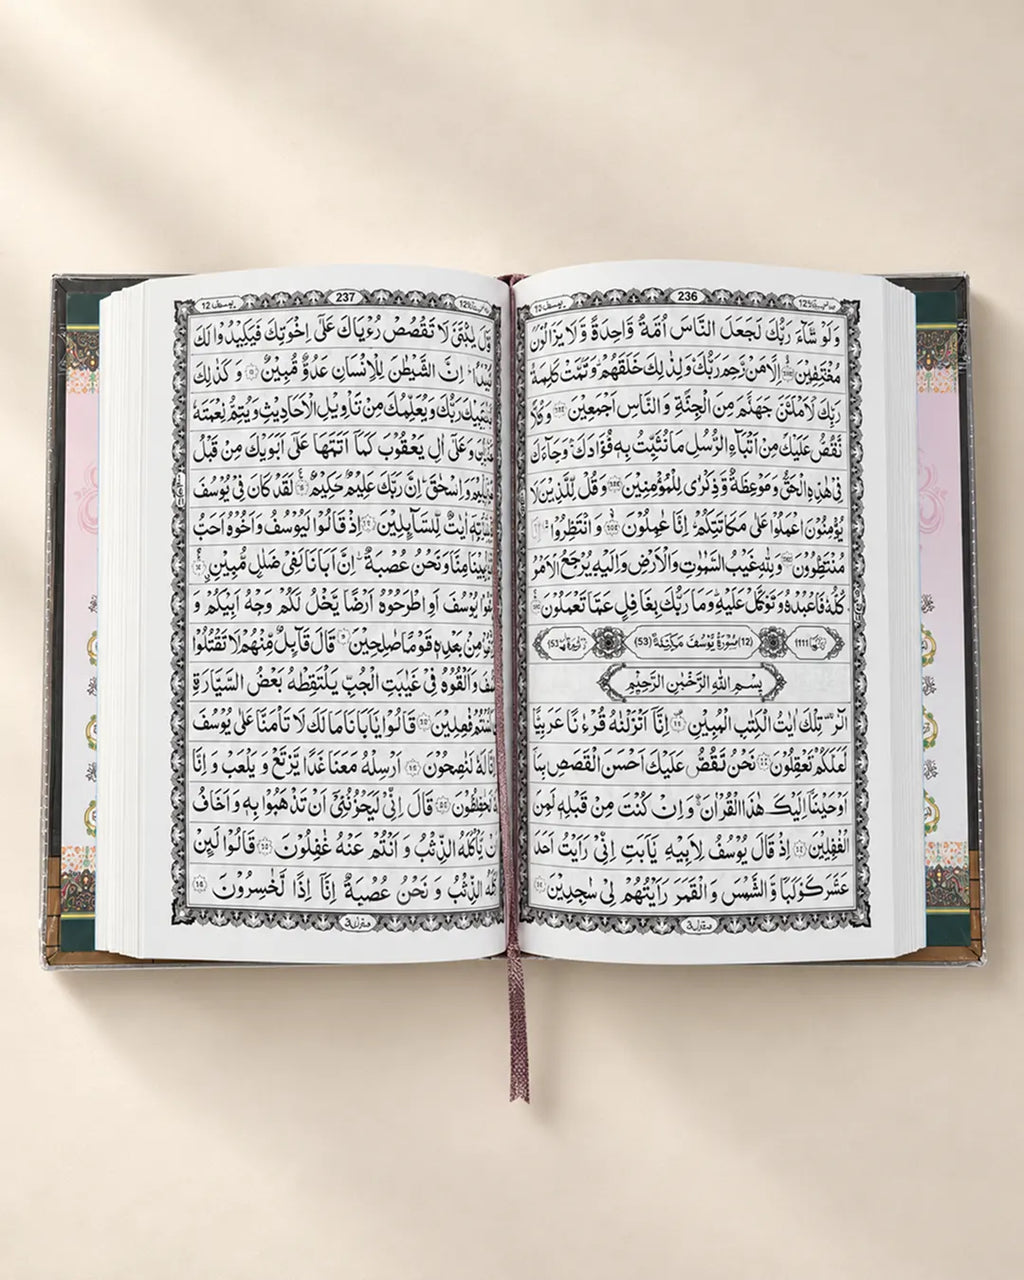 236
وَلَوْ شَآءَ رَبُّكَ لَجَعَلَ النَّاسَ اُمَّةً وَّاحِدَةً وَّلَا يَزَالُوْنَ
مُخْتَلِفِيْنَ اِلَّا مَنْ رَّحِمَ رَبُّكَ وَلِذٰلِكَ خَلَقَهُمْ وَتَمَّتْ كَلِمَةُ
رَبِّكَ لَاَمْلَئَنَّ جَهَنَّمَ مِنَ الْجِنَّةِ وَالنَّاسِ اَجْمَعِيْنَ وَكُلًّا
نَّقُصُّ عَلَيْكَ مِنْ اَنْۢبَآءِ الرُّسُلِ مَا نُثَبِّتُ بِهٖ فُؤَادَكَ وَجَآءَكَ
فِيْ هٰذِهِ الْحَقُّ وَمَوْعِظَةٌ وَّذِكْرٰى لِلْمُؤْمِنِيْنَ وَقُلْ لِّلَّذِيْنَ لَا
يُؤْمِنُوْنَ اعْمَلُوْا عَلٰى مَكَانَتِكُمْ اِنَّا عٰمِلُوْنَ وَانْتَظِرُوْا
مُنْتَظِرُوْنَ وَلِلّٰهِ غَيْبُ السَّمٰوٰتِ وَالْاَرْضِ وَاِلَيْهِ يُرْجَعُ الْاَمْرُ
كُلُّهٗ فَاعْبُدْهُ وَتَوَكَّلْ عَلَيْهِ وَمَا رَبُّكَ بِغَافِلٍ عَمَّا تَعْمَلُوْنَ
(12) سُوْرَةُ يُوْسُفَ مَكِّيَّةٌ (53)
بِسْمِ اللّٰهِ الرَّحْمٰنِ الرَّحِيْمِ
الٓرٰ تِلْكَ اٰيٰتُ الْكِتٰبِ الْمُبِيْنِ اِنَّآ اَنْزَلْنٰهُ قُرْءٰنًا عَرَبِيًّا
لَّعَلَّكُمْ تَعْقِلُوْنَ نَحْنُ نَقُصُّ عَلَيْكَ اَحْسَنَ الْقَصَصِ بِمَآ
اَوْحَيْنَآ اِلَيْكَ هٰذَا الْقُرْاٰنَ وَاِنْ كُنْتَ مِنْ قَبْلِهٖ لَمِنَ
الْغٰفِلِيْنَ اِذْ قَالَ يُوْسُفُ لِاَبِيْهِ يٰٓاَبَتِ اِنِّيْ رَاَيْتُ اَحَدَ
عَشَرَ كَوْكَبًا وَّالشَّمْسَ وَالْقَمَرَ رَاَيْتُهُمْ لِيْ سٰجِدِيْنَ
237
يوسف 12
قَالَ يٰبُنَيَّ لَا تَقْصُصْ رُءْيَاكَ عَلٰٓى اِخْوَتِكَ فَيَكِيْدُوْا لَكَ
كَيْدًا اِنَّ الشَّيْطٰنَ لِلْاِنْسَانِ عَدُوٌّ مُّبِيْنٌ وَكَذٰلِكَ
رَبُّكَ وَيُعَلِّمُكَ مِنْ تَاْوِيْلِ الْاَحَادِيْثِ وَيُتِمُّ نِعْمَتَهٗ
وَعَلٰٓى اٰلِ يَعْقُوْبَ كَمَآ اَتَمَّهَا عَلٰٓى اَبَوَيْكَ مِنْ قَبْلُ
وَاِسْحٰقَ اِنَّ رَبَّكَ عَلِيْمٌ حَكِيْمٌ لَقَدْ كَانَ فِيْ يُوْسُفَ
اٰيٰتٌ لِّلسَّآئِلِيْنَ اِذْ قَالُوْا لَيُوْسُفُ وَاَخُوْهُ اَحَبُّ
اَبِيْنَا مِنَّا وَنَحْنُ عُصْبَةٌ اِنَّ اَبَانَا لَفِيْ ضَلٰلٍ مُّبِيْنٍ
يُوْسُفَ اَوِ اطْرَحُوْهُ اَرْضًا يَّخْلُ لَكُمْ وَجْهُ اَبِيْكُمْ وَ
مِنْۢ بَعْدِهٖ قَوْمًا صٰلِحِيْنَ قَالَ قَآئِلٌ مِّنْهُمْ لَا تَقْتُلُوْا
وَاَلْقُوْهُ فِيْ غَيٰبَتِ الْجُبِّ يَلْتَقِطْهُ بَعْضُ السَّيَّارَةِ
كُنْتُمْ فٰعِلِيْنَ قَالُوْا يٰٓاَبَانَا مَا لَكَ لَا تَاْمَنَّا عَلٰى يُوْسُفَ
لَهٗ لَنٰصِحُوْنَ اَرْسِلْهُ مَعَنَا غَدًا يَّرْتَعْ وَيَلْعَبْ وَاِنَّا
لَحٰفِظُوْنَ قَالَ اِنِّيْ لَيَحْزُنُنِيْٓ اَنْ تَذْهَبُوْا بِهٖ وَاَخَافُ
اَنْ يَّاْكُلَهُ الذِّئْبُ وَاَنْتُمْ عَنْهُ غٰفِلُوْنَ قَالُوْا لَئِنْ
الذِّئْبُ وَنَحْنُ عُصْبَةٌ اِنَّآ اِذًا لَّخٰسِرُوْنَ